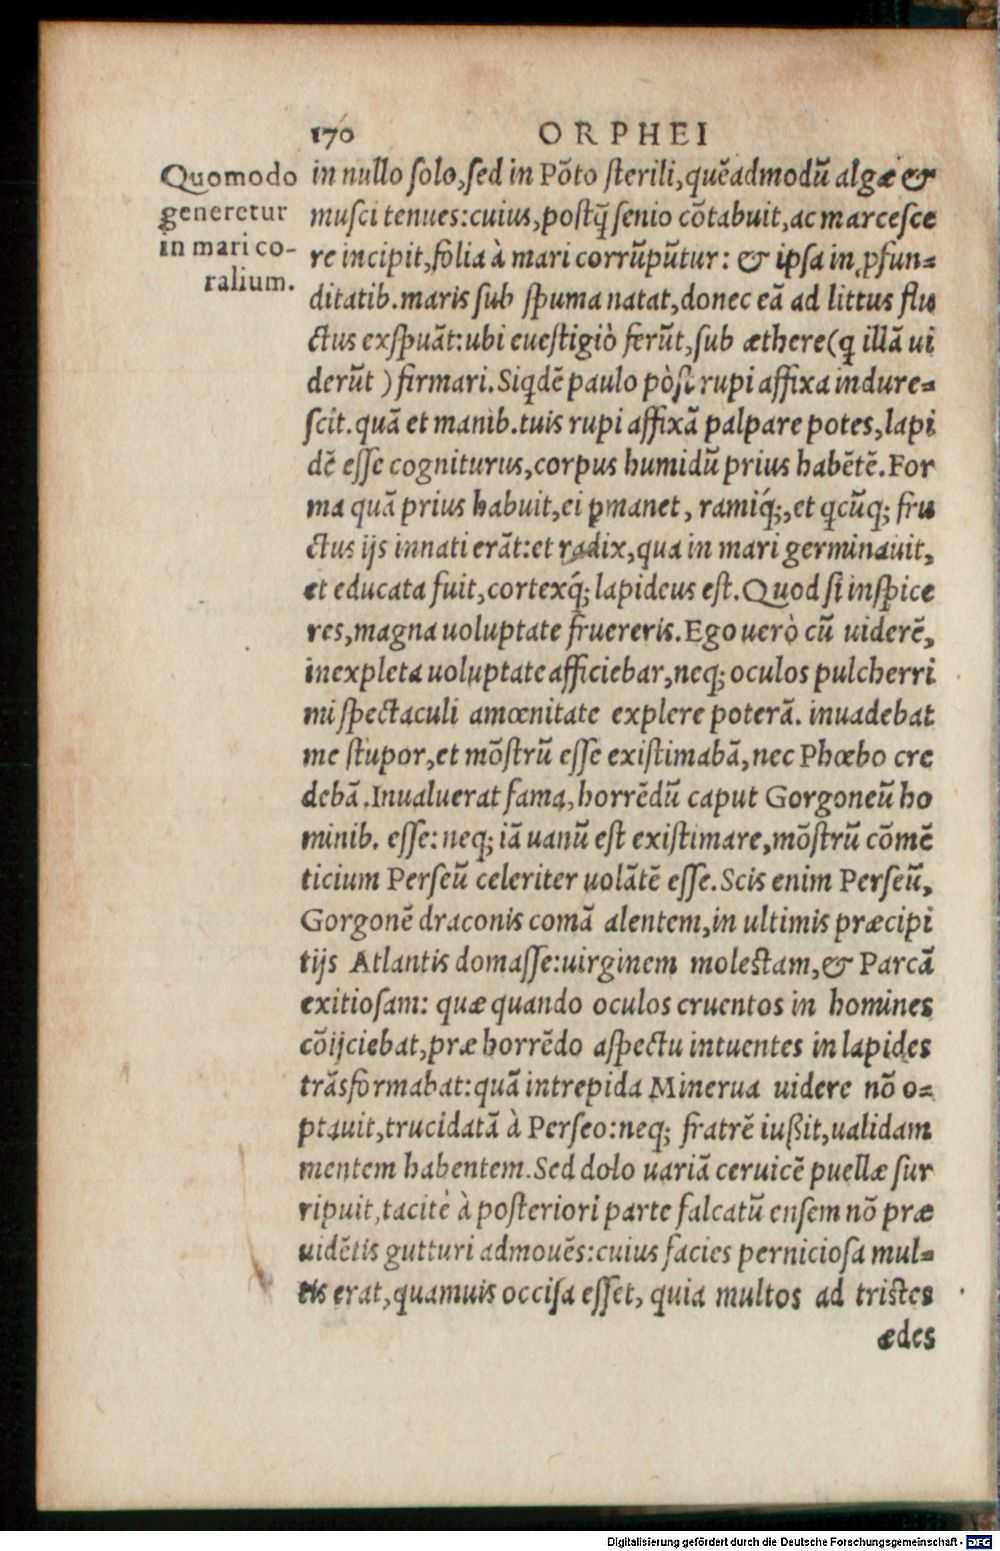 170 ORPHEI
Quomodo
generetur
in mari co-
ralium.
in nullo ſolo, ſed in Põto ſterili, quẽadmodũ algæ &
muſci tenues: cuius, poſtq̃ ſenio cõtabuit, ac marceſce
re incipit, folia à mari corrũpũtur: & ipſa in ꝓfun-
ditatib. maris ſub ſpuma natat, donec eã ad littus flu
ctus exſpuãt: ubi eueſtigiò ferũt, ſub æthere (q illã ui
derũt) firmari. Siqdẽ paulo pòſt rupi affixa indure-
ſcit. quã et manib. tuis rupi affixã palpare potes, lapi
dẽ eſſe cogniturus, corpus humidũ prius habẽtẽ. For
ma quã prius habuit, ei ꝑmanet, ramiq́;, et qcũq; fru
ctus ijs innati erãt: et radix, qua in mari germinauit,
et educata fuit, cortexq́; lapideus eſt. Quod ſi inſpice
res, magna uoluptate fruereris. Ego uerò cũ uiderẽ,
inexpleta uoluptate afficiebar, neq; oculos pulcherri
mi ſpectaculi amœnitate explere poterã. inuadebat
me ſtupor, et mõſtrũ eſſe exiſtimabã, nec Phœbo cre
debã. Inualuerat fama, horrẽdũ caput Gorgoneũ ho
minib. eſſe: neq; iã uanũ eſt exiſtimare, mõſtrũ cõmẽ
ticium Perſeũ celeriter uolãtẽ eſſe. Scis enim Perſeũ,
Gorgonẽ draconis comã alentem, in ultimis præcipi
tijs Atlantis domaſſe: uirginem moleſtam, & Parcã
exitioſam: quæ quando oculos cruentos in homines
cõijciebat, præ horrẽdo aſpectu intuentes in lapides
trãsformabat: quã intrepida Minerua uidere nõ o-
ptauit, trucidatã à Perſeo: neq; fratrẽ iußit, ualidam
mentem habentem. Sed dolo uariã ceruicẽ puellæ ſur
ripuit, tacitè à poſteriori parte falcatũ enſem nõ præ
uidẽtis gutturi admouẽs: cuius facies pernicioſa mul-
tis erat, quamuis occiſa eſſet, quia multos ad triſtes
ædes
Digitalisierung gefördert durch die Deutsche Forschungsgemeinschaft - DFG